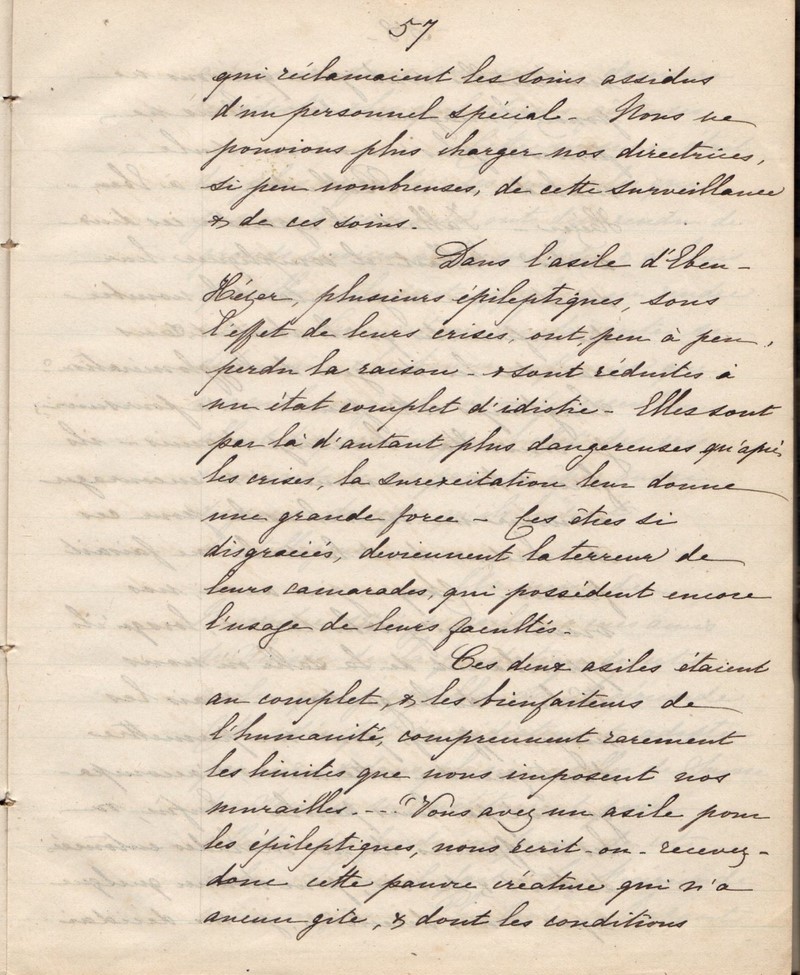 57
qui réclamaient les soins assidus
d'un personnel spécial - Nous ne
pouvions plus charger nos directrices,
si peu nombreuses, de cette surveillance
& de ces soins.
Dans l'asile d'Eben-
Hézer, plusieurs épileptiques, sous
l'effet de leurs crises, ont, peu à peu,
perdu la raison - & sont réduites à
un état complet d'idiotie - Elles sont
par là d'autant plus dangereuses qu'après
les crises, la surexcitation leur donne
une grande force - Ces êtres si
disgraciés, deviennent la terreur de
leurs camarades, qui possédent encore
l'usage de leurs facultés.
Ces deux asiles étaient
au complet, & les bienfaiteurs de
l'humanité, comprennent rarement
les limites que nous imposent nos
murailles. -- "Vous avez un asile pour
les épileptiques, nous écrit-on - recevez-
donc cette pauvre créature qui n'a
aucun gite, & dont les conditions